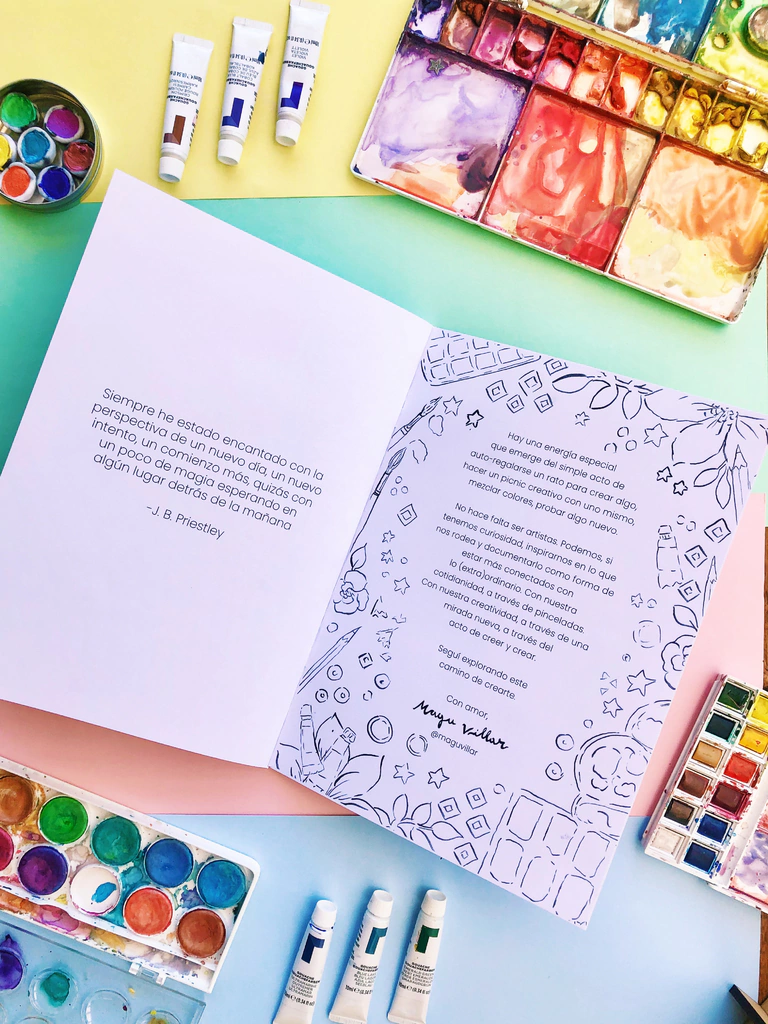 GOUACHE
GOUACHE
GOUACHE
Siempre he estado encantado con la
perspectiva de un nuevo día, un nuevo
intento, un comienzo más, quizás con
un poco de magia esperando en
algún lugar detrás de la mañana
-J. B. Priestley
Hay una energía especial
que emerge del simple acto de
auto-regalarse un rato para crear algo,
hacer un picnic creativo con uno mismo,
mezclar colores, probar algo nuevo.
No hace falta ser artistas. Podemos, si
tenemos curiosidad, inspirarnos en lo que
nos rodea y documentarlo como forma de
estar más conectados con
lo (extra)ordinario. Con nuestra
cotidianidad, a través de pinceladas.
Con nuestra creatividad, a través de una
mirada nueva, a través del
acto de creer y crear.
Seguí explorando este
camino de crearte.
Con amor,
Magu Villar
@maguvillar
GOUACHE
10ml e (0.34 fl oz)
GOUACHE
10ml e (0.34 fl oz)
GOUACHE
10ml e (0.34 fl oz)